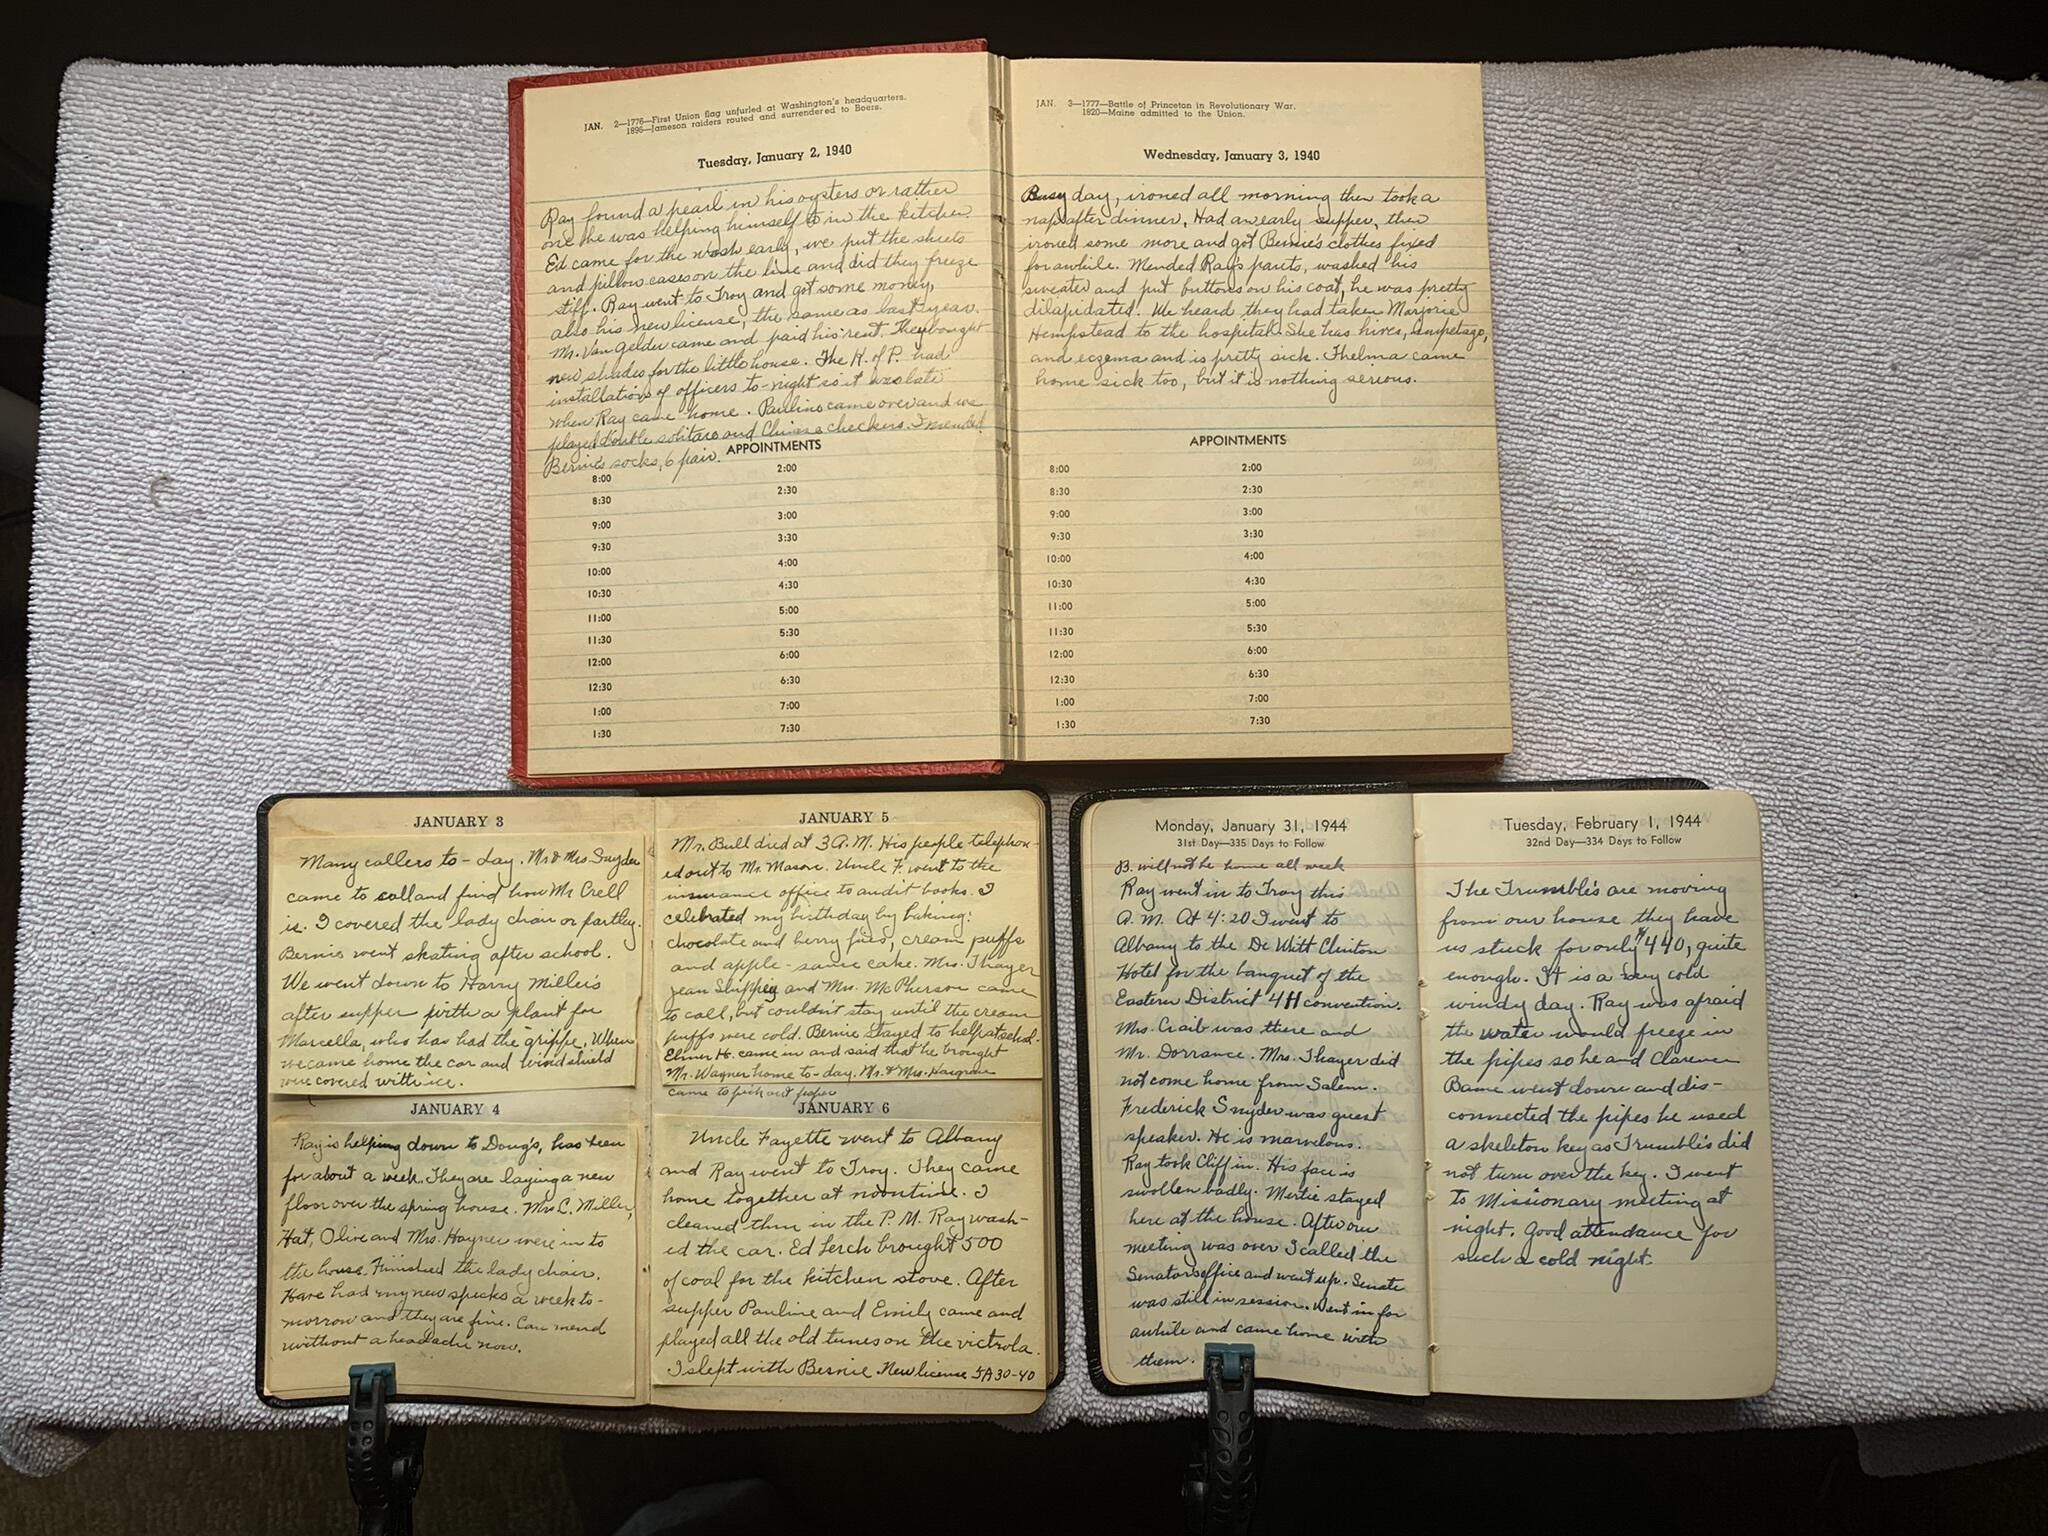 JAN. 2—1776—First Union flag unfurled at Washington's headquarters.
1896—Jameson raiders routed and surrendered to Boers.
Tuesday, January 2, 1940
Ray found a pearl in his oysters or rather
one he was helping himself to in the kitchen.
Ed came for the wash early, we put the sheets
and pillow cases on the line and did they freeze
stiff. Ray went to Troy and got some money,
also his new license, the same as last year.
Mr. Van Gelder came and paid his rent. They bought
new shades for the little house. The K. of P. had
installation of officers to-night so it was late
when Ray came home. Pauline came over and we
played double solitare and Chinese checkers. I mended
Bernie's socks, 6 pair.
APPOINTMENTS
8:00 2:00
8:30 2:30
9:00 3:00
9:30 3:30
10:00 4:00
10:30 4:30
11:00 5:00
11:30 5:30
12:00 6:00
12:30 6:30
1:00 7:00
1:30 7:30
JAN. 3—1777—Battle of Princeton in Revolutionary War.
1820—Maine admitted to the Union.
Wednesday, January 3, 1940
Busy day, ironed all morning then took a
nap after dinner, Had an early supper, then
ironed some more and got Bernie's clothes fixed
for awhile. Mended Ray's pants, washed his
sweater and put buttons on his coat, he was pretty
dilapidated. We heard they had taken Marjorie
Hempstead to the hospital. She has hives, impetago,
and eczema and is pretty sick. Thelma came
home sick too, but it is nothing serious.
APPOINTMENTS
8:00 2:00
8:30 2:30
9:00 3:00
9:30 3:30
10:00 4:00
10:30 4:30
11:00 5:00
11:30 5:30
12:00 6:00
12:30 6:30
1:00 7:00
1:30 7:30
JANUARY 3
Many callers to-day. Mr & Mrs. Snyder
came to call and find how Mr Crell
is. I covered the lady chair or partley.
Bernie went skating after school.
We went down to Harry Miller's
after supper with a plant for
Marcella, who has had the grippe. When
we came home the car and windshield
were covered with ice.
JANUARY 4
Ray is helping down to Doug's, has been
for about a week. They are laying a new
floor over the spring house. Mrs C. Miller,
Hat, Olive and Mrs. Hayner were in to
the house. Finished the lady chair.
Have had my new specks a week to-
morrow and they are fine. Can mend
without a headache now.
JANUARY 5
Mr. Bull died at 3 A.M. His people telephon-
ed out to Mr. Mason. Uncle F. went to the
insurance office to audit books. I
celebrated my birthday by baking:
chocolate and berry pies, cream puffs
and apple-sauce cake. Mrs. Thayer
Jean Shippey and Mrs. McPherson came
to call, but couldn't stay until the cream
puffs were cold. Bernie stayed to help at school.
Elmer H. came in and said that he brought
Mr. Wagner home to-day. Mr. & Mrs. Hargrave
came to pick out paper
JANUARY 6
Uncle Fayette went to Albany
and Ray went to Troy. They came
home together at noontime. I
cleaned thru in the P.M. Ray wash-
ed the car. Ed Lerch brought 500
of coal for the kitchen stove. After
supper Pauline and Emily came and
played all the old tunes on the victrola.
I slept with Bernie. New license 5A30-40
Monday, January 31, 1944
31st Day—335 Days to Follow
B. will not be home all week
Ray went in to Troy this
A.M. At 4:20 I went to
Albany to the De Witt Clinton
Hotel for the banquet of the
Eastern District 4H convention.
Mrs. Craib was there and
Mr. Dorrance. Mrs. Thayer did
not come home from Salem.
Frederick Snyder was guest
speaker. He is marvelous.
Ray took Cliff in. His face is
swollen badly. Mertie stayed
here at the house. After our
meeting was over I called the
Senators office and went up. Senate
was still in session. Went in for
awhile and came home with
them.
Tuesday, February 1, 1944
32nd Day—334 Days to Follow
The Trumble's are moving
from our house they have
us stuck for only $440, quite
enough. It is a very cold
windy day. Ray was afraid
the water would freeze in
the pipes so he and Clarence
Bame went down and dis-
connected the pipes he used
a skeleton key as Trumble's did
not turn over the key. I went
to Missionary meeting at
night. Good attendance for
such a cold night.